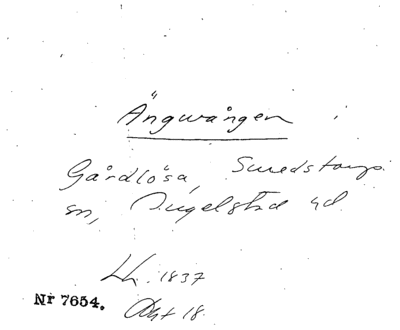 Ängvången
Gårdlösa, Smedstorps
sn, Ingelstad hd.
Lh. 1837
Nr 7654.
Akt 18.